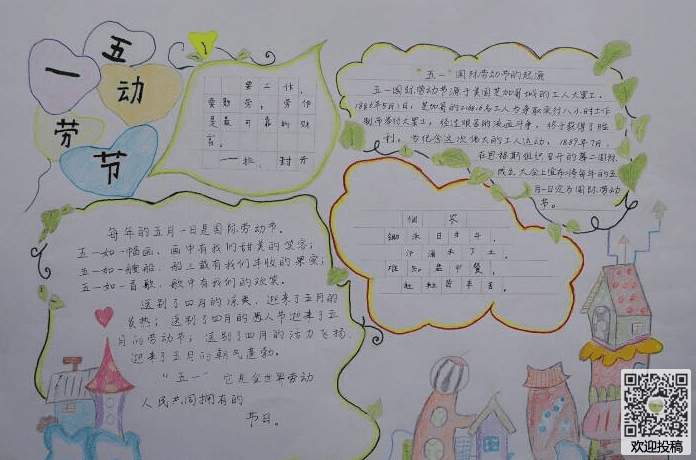 五
一
动
劳
节
要工作,
要勤劳; 劳作
是最可靠的财
富。
——拉. 封丹
"五一"国际劳动节的起源
五一国际劳动节源于美国芝加哥城的工人大罢工。
1886年5月1日, 芝加哥的216816名工人为争取实行八小时工作
制而举行大罢工, 经过艰苦的流血斗争, 终于获得了胜
利。为纪念这次伟大的工人运动, 1889年7月,
在恩格斯组织召开的第二国际
成立大会上宣布将每年的五
月一日定为国际劳动
节。
悯 农
锄禾日当午,
汗滴禾下土。
谁知盘中餐,
粒粒皆辛苦。
每年的五月一日是国际劳动节。
五一如一幅画, 画中有我们甜美的笑容;
五一如一艘船, 船上载有我们丰收的果实;
五一如一首歌, 歌中有我们的欢笑。
送别了四月的凉爽, 迎来了五月的
炎热; 送别了四月的愚人节迎来了五
月的劳动节; 送别了四月的活力飞扬,
迎来了五月的朝气蓬勃。
"五一" 它是全世界劳动
人民共同拥有的
节日。
欢迎投稿